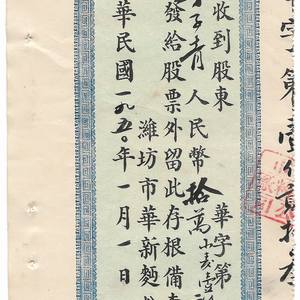 字第壹佰貳拾叁
華字第
收到股東
子青人民幣拾萬
發給股票外留此存根備查
濰坊市華新麵
華民國一九五〇年一月一日